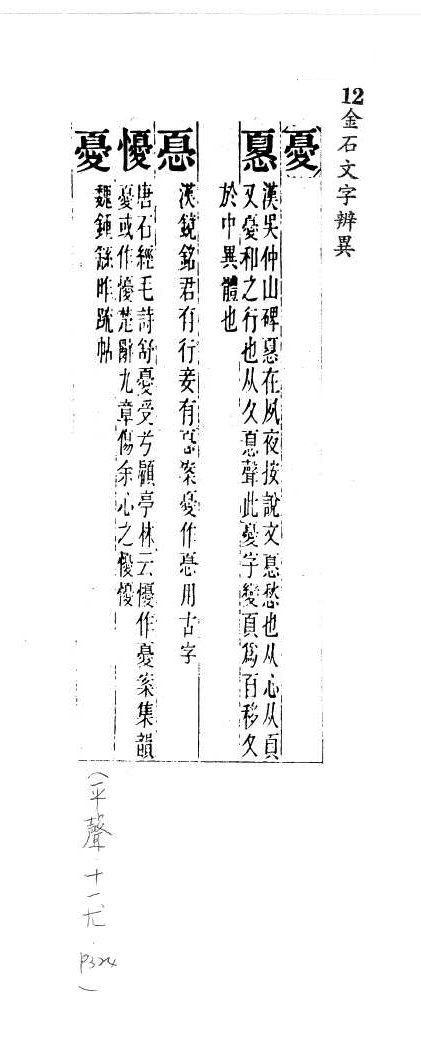 12金石文字辨異
〔憂〕
㥑 漢吳仲山碑㥑在夙夜按說文㥑愁也从心从頁
又憂和之行也从夊㥑聲此憂字變頁為百移夊
於中異體也
㤅 漢鏡銘君有行妾有㤅案憂作㤅用古字
懮 唐石經毛詩舒憂受兮顧亭林云懮作憂案集韻
憂或作懮楚辭九章傷余心之懮懮
憂 魏鍾繇昨疏帖
（平聲·十一尤·P324）